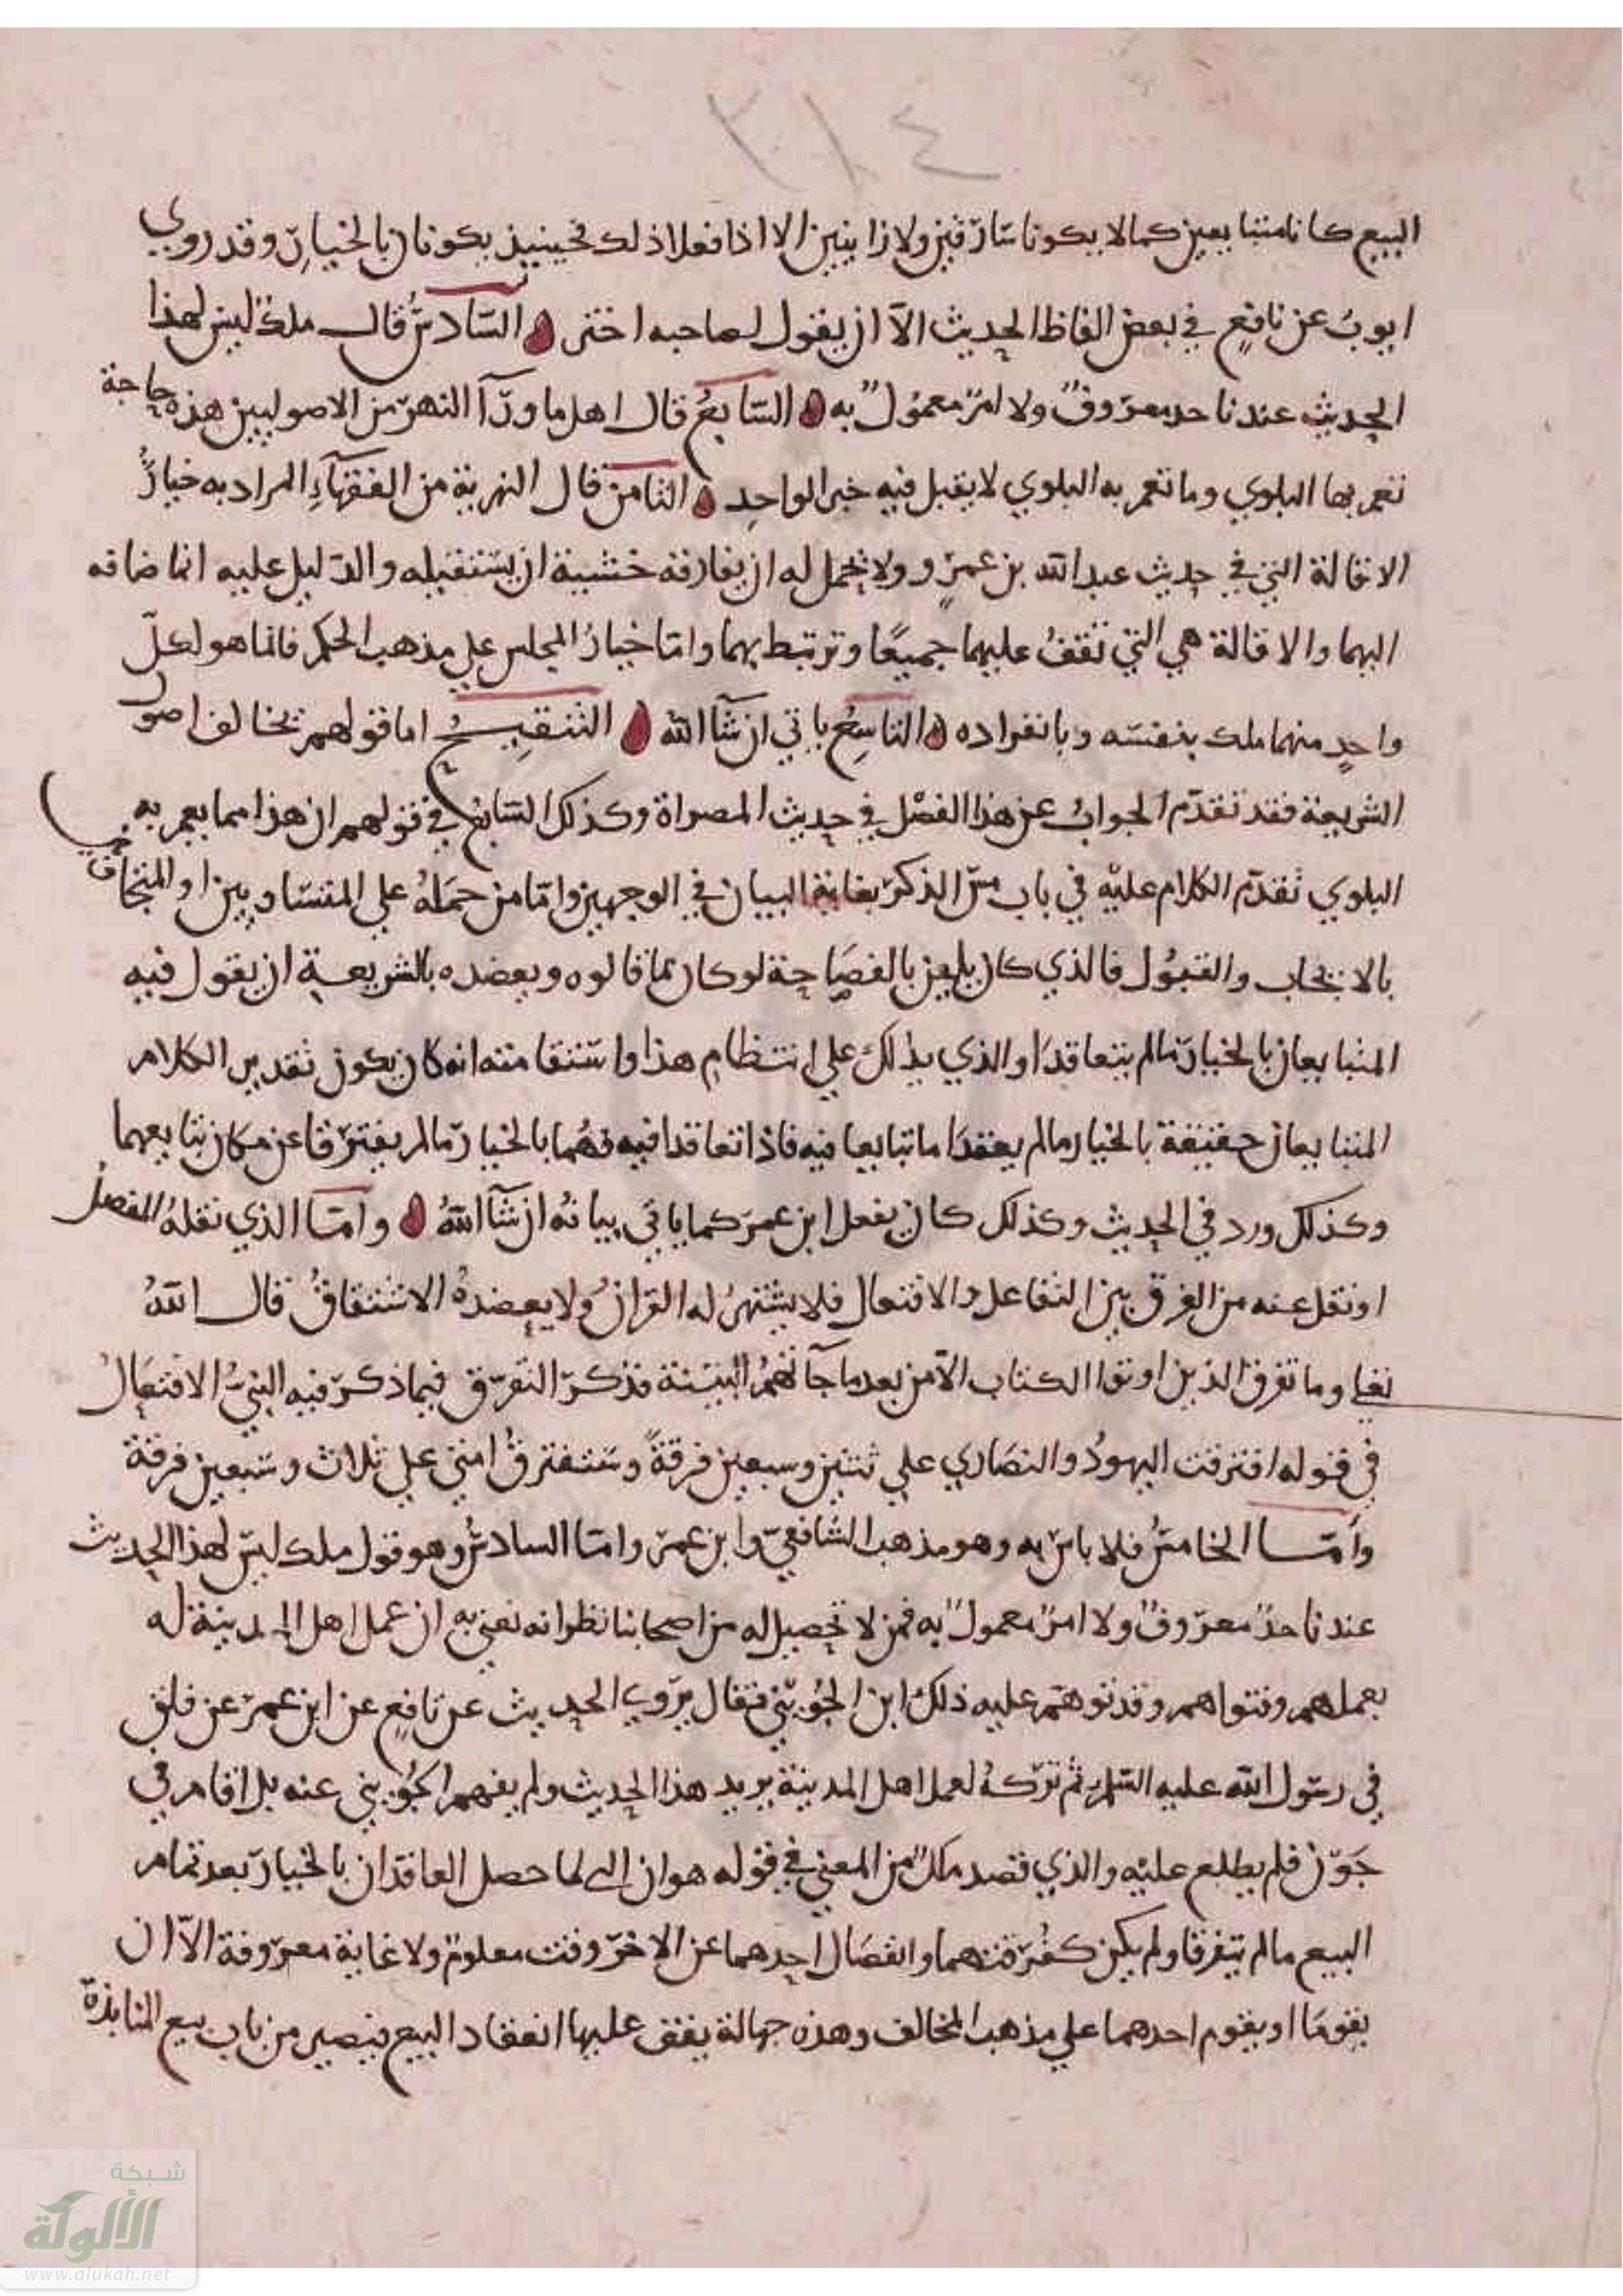 ٢١٤
البيع كانا متبايعين كما لا يكونا سارقين ولا زانيين الا اذا فعلا ذلك فحينيذ يكونان بالخيار وقد روي
ايوب عن نافع في بعض الفاظ الحديث الا ان يقول لصاحبه اختر السادس قال ملك ليس لهذا
الحديث عندنا حد معروف ولا امر معمول به السابع قال اهل ما ورآ النهر من الاصوليين هذه حاجة
تعم بها البلوي وما تعم به البلوي لا يقبل فيه خبر الواحد الثامن قال النهرية من الفقهآء المراد به خيار
الاقالة التي في حديث عبد الله بن عمرو ولا يحل له ان يفارقه خشية ان يستقيله والدليل عليه انما ضافه
اليهما والاقالة هي التي تقف عليهما جميعا وترتبط بهما واما خيار المجلس علي مذهب الحكم فانما هو لكل
واحد منهما ملك بنفسه وبانفراده التاسع ياتي ان شآ الله التنقيح اما قولهم تخالف اصول
الشريعة فقد تقدم الجواب عن هذا الفصل في حديث المصراة وكذلك السابع في قولهم ان هذا مما يعم به
البلوي تقدم الكلام عليه في باب مس الذكر بغاية البيان في الوجهين واما من حمله علي المتساومين او
بالايجاب والقبول فالذي كان يليق بالفصاحة لو كان ما قالوه ويعضده بالشريعة ان يقول فيه
المتبايعان بالخيار ما لم يتعاقدا والذي يدلك علي انتظام هذا واستقامته انه كان يكون تقدير الكلام
المتبايعان حقيقة بالخيار ما لم يعقدا ما تبايعا فيه فاذا تعاقدا فيه فهما بالخيار ما لم يفترقا عن مكان تبايعهما
وكذلك ورد في الحديث وكذلك كان يفعل ابن عمر كما ياتي بيانه ان شآ الله واما الذي نقله المفضل
او نقل عنه من الفرق بين التفاعل والافتعال فلا يشهد له القران ولا يعضده الاشتقاق قال الله
تعلي وما تفرق الذين اوتوا الكتاب الا من بعد ما جآتهم البينة فذكر التفرق فيما ذكر فيه النبي الافتعال
في قوله افترقت اليهود والنصاري علي ثنتين وسبعين فرقة وستفترق امتي علي ثلاث وسبعين فرقة
واما الخامس فلا باس به وهو مذهب الشافعي وابن عمر واما السادس وهو قول ملك ليس لهذا الحديث
عندنا حد معروف ولا امر معمول به فمن لا تحصيل له من اصحابنا نظر انه نعني به ان عمل اهل المدينة له
بعملهم وفتواهم وقد توهم عليه ذلك ابن الجويني فقال يروي الحديث عن نافع عن ابن عمر عن فلق
في رسول الله عليه السلم ثم تركه لعمل اهل المدينة يريد هذا الحديث ولم يفهم الجويني عنه بل اقام في
جون فلم يطلع عليه والذي قصد ملك من المعني في قوله هو ان النبي لما حصل العاقدان بالخيار بعد تمام
البيع ما لم يتفرقا ولم يكن كفرقتهما وانفصال احدهما عن الاخر وقت معلوم ولا غاية معروفة الا ان
يقوما او يقوم احدهما علي مذهب المخالف وهذه جهالة يقف عليها انعقاد البيع فيصير من باب بيع المنابذة
شبكة
الألوكة
www.alukah.net